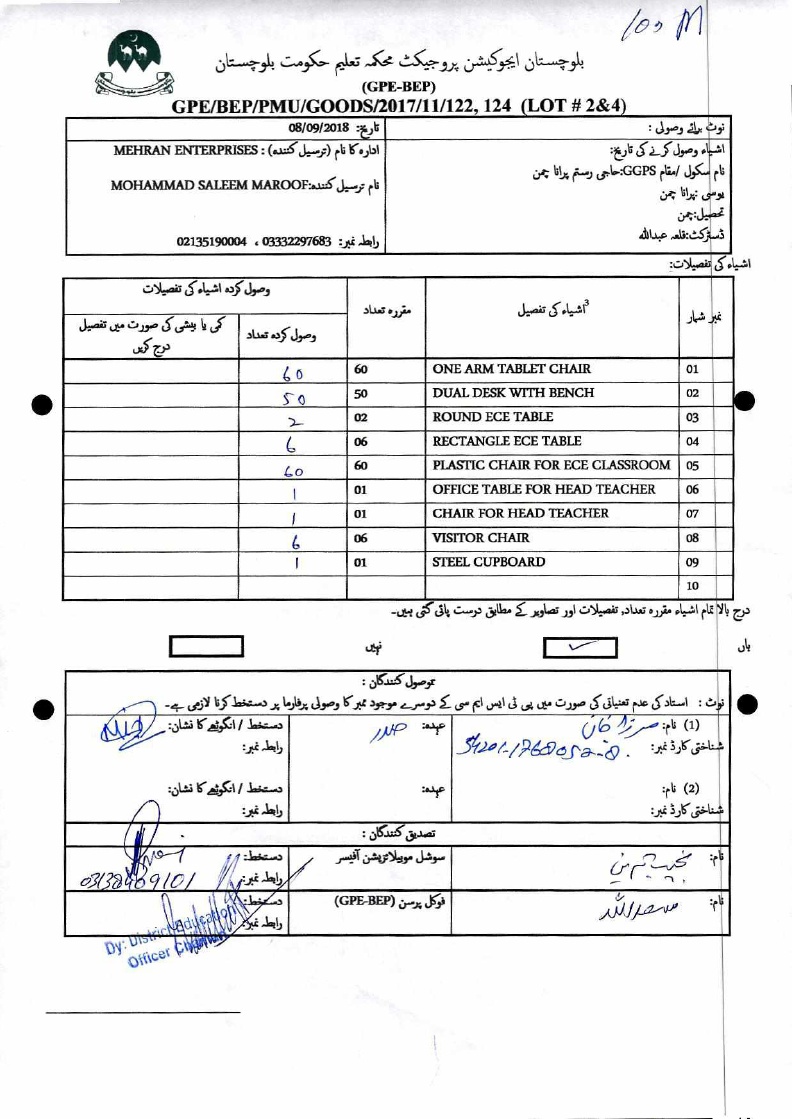 100 M
بلوچستان ایجوکیشن پروجیکٹ محکمہ تعلیم حکومت بلوچستان
(GPE-BEP)
GPE/BEP/PMU/GOODS/2017/11/122, 124 (LOT # 2&4)
نوٹ برائے وصولی :
اشیاء وصول کرنے کی تاریخ:
نام سکول /مقام GGPS:حاجی رستم پرانا چمن
یوسی :پرانا چمن
تحصیل:چمن
ڈسٹرکٹ:قلعہ عبداللہ
تاریخ: 08/09/2018
ادارہ کا نام (ترسیل کنندہ) : MEHRAN ENTERPRISES
نام ترسیل کنندہ:MOHAMMAD SALEEM MAROOF
رابطہ نمبر: 03332297683 ، 02135190004
اشیاء کی تفصیلات:
نمبر شمار
3اشیاء کی تفصیل
مقررہ تعداد
وصول کردہ اشیاء کی تفصیلات
وصول کردہ تعداد
کمی یا بیشی کی صورت میں تفصیل درج کریں
01 ONE ARM TABLET CHAIR 60 60
02 DUAL DESK WITH BENCH 50 50
03 ROUND ECE TABLE 02 2
04 RECTANGLE ECE TABLE 06 6
05 PLASTIC CHAIR FOR ECE CLASSROOM 60 60
06 OFFICE TABLE FOR HEAD TEACHER 01 1
07 CHAIR FOR HEAD TEACHER 01 1
08 VISITOR CHAIR 06 6
09 STEEL CUPBOARD 01 1
10
درج بالا تمام اشیاء مقررہ تعداد, تفصیلات اور تصاویر کے مطابق درست پائی گئی ہیں۔
ہاں ✓ نہیں
وصول کنندگان :
نوٹ : استاد کی عدم تعیناتی کی صورت میں پی ٹی ایس ایم سی کے دوسرے موجود ممبر کا وصولی پرفارما پر دستخط کرنا لازمی ہے۔
(1) نام: عہدہ: صدر دستخط / انگوٹھے کا نشان:
شناختی کارڈ نمبر: 54201-1768052-8. رابطہ نمبر:
(2) نام: عہدہ: دستخط / انگوٹھے کا نشان:
شناختی کارڈ نمبر: رابطہ نمبر:
تصدیق کنندگان :
نام: سوشل موبیلائزیشن آفیسر دستخط:
رابطہ نمبر: 03138469101
نام: سعداللہ فوکل پرسن (GPE-BEP) دستخط:
رابطہ نمبر:
Dy: District Education
Officer Chaman